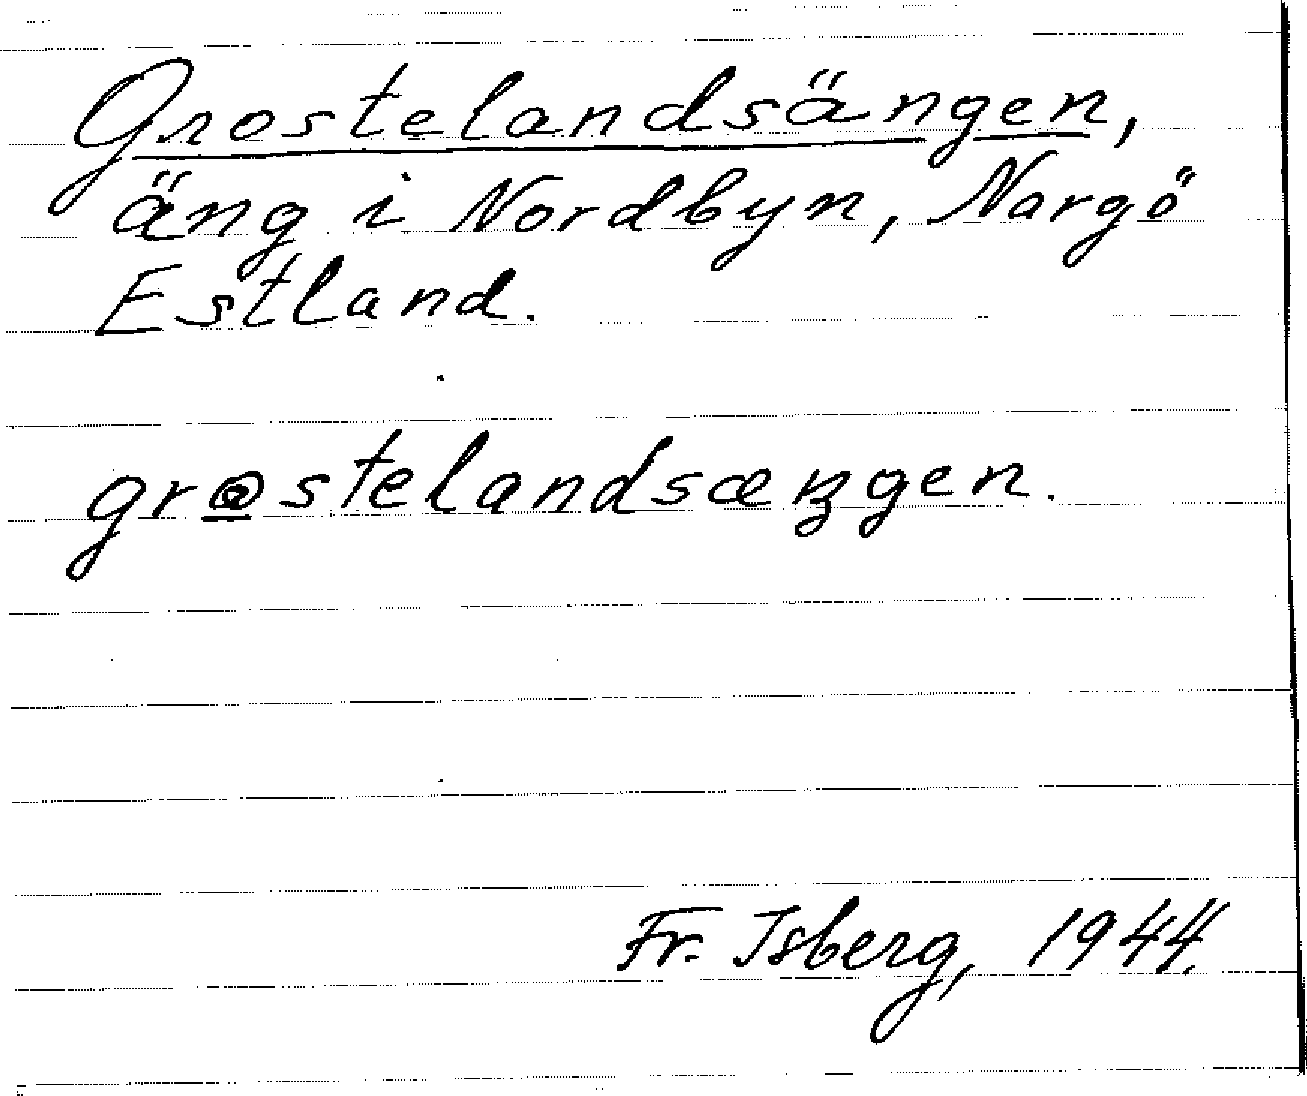 Grostelandsängen,
äng i Nordbyn, Nargö
Estland.
grⱺstelandsæŋgen.
Fr. Isberg, 1944.